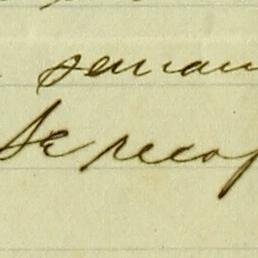 seman
Se recop